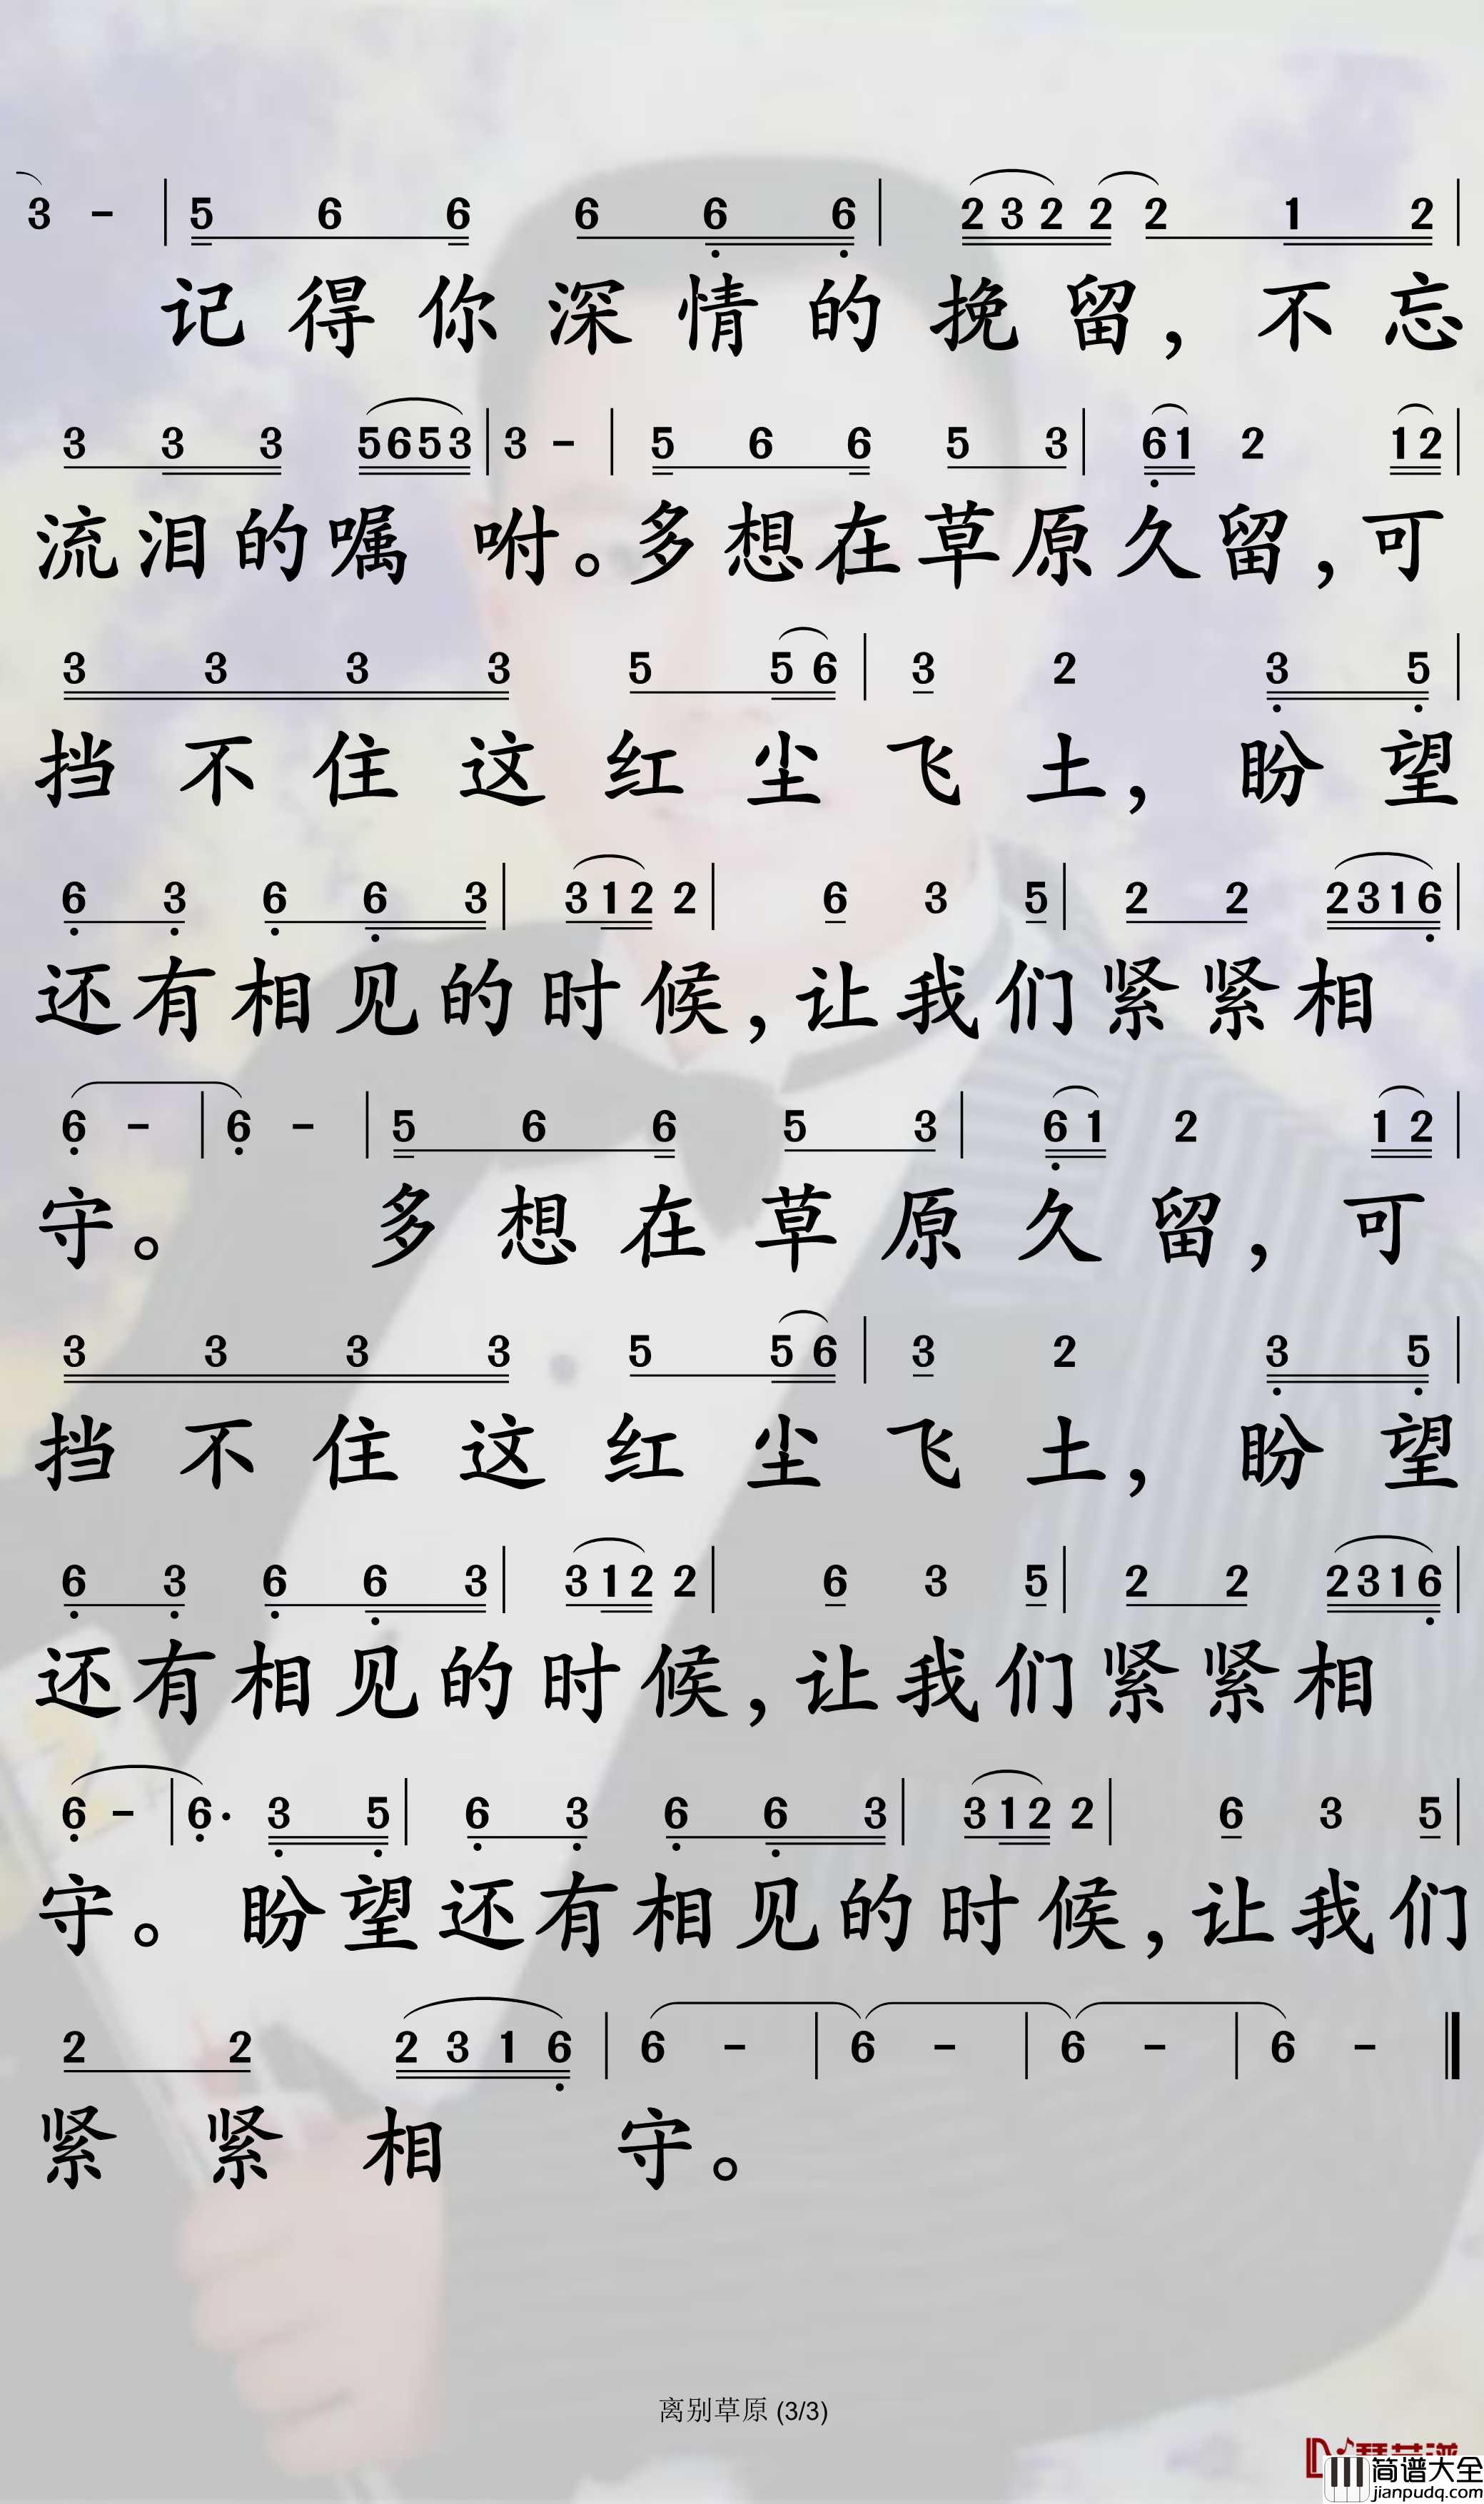 3 - | 5 6 6 6 6 6 | 2 3 2 2 2 1 2 |
记得你深情的挽留，不忘
3 3 3 5653 | 3 - | 5 6 6 5 3 | 61 2 12 |
流泪的嘱咐。多想在草原久留，可
3 3 3 3 5 5 6 | 3 2 3 5 |
挡不住这红尘飞土，盼望
6 3 6 6 3 | 312 2 | 6 3 5 | 2 2 2316 |
还有相见的时候，让我们紧紧相
6 - | 6 - | 5 6 6 5 3 | 6 1 2 1 2 |
守。多想在草原久留，可
3 3 3 3 5 5 6 | 3 2 3 5 |
挡不住这红尘飞土，盼望
6 3 6 6 3 | 312 2 | 6 3 5 | 2 2 2316 |
还有相见的时候，让我们紧紧相
6 - | 6· 3 5 | 6 3 6 6 3 | 312 2 | 6 3 5 |
守。盼望还有相见的时候，让我们
2 2 2 3 1 6 | 6 - | 6 - | 6 - | 6 - ‖
紧紧相守。
离别草原 (3/3)
简谱大全
jianpudq.com